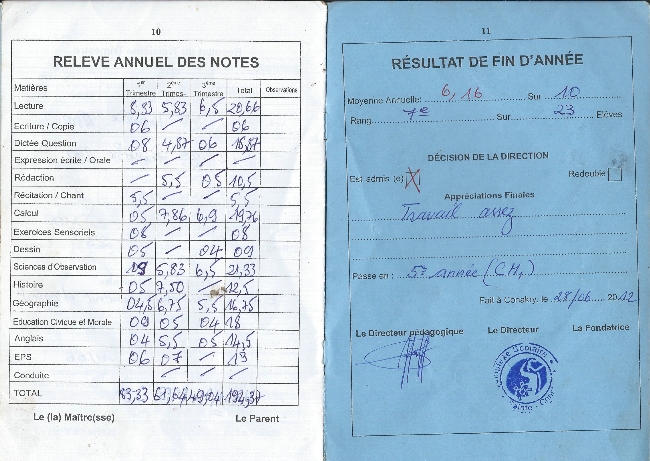 10
RELEVE ANNUEL DES NOTES
Matières 1er Trimestre 2ème Trimes- 3ème Trimestre Total Observations
Lecture 8,33 5,83 6,5 20,66
Ecriture / Copie 06 / / 06
Dictée Question 08 4,87 06 18,87
Expression écrite / Orale / / / /
Rédaction / 5,5 05 10,5
Récitation / Chant 5,5 / / 5,5
Calcul 05 7,86 6,9 19,76
Exercices Sensoriels 08 / / 08
Dessin 05 / 04 09
Sciences d'Observation 5,83 6,5 21,33
Histoire 05 7,50 / 12,5
Géographie 04,5 6,75 5,5 16,75
Education Civique et Morale 09 05 04 18
Anglais 04 5,5 05 14,5
EPS 06 07 / 13
Conduite / / /
TOTAL 83,33 61,64 49,04 194,37
Le (la) Maître(sse) Le Parent
11
RÉSULTAT DE FIN D'ANNÉE
Moyenne Annuelle: 6,16 Sur 10
Rang 7e Sur 23 Elèves
DÉCISION DE LA DIRECTION
Est admis (e) X Redouble
Appréciations Finales
Travail assez
Passe en : 5e année (CM1)
Fait à Conakry, le 28/06 2012
Le Directeur pédagogique Le Directeur La Fondatrice